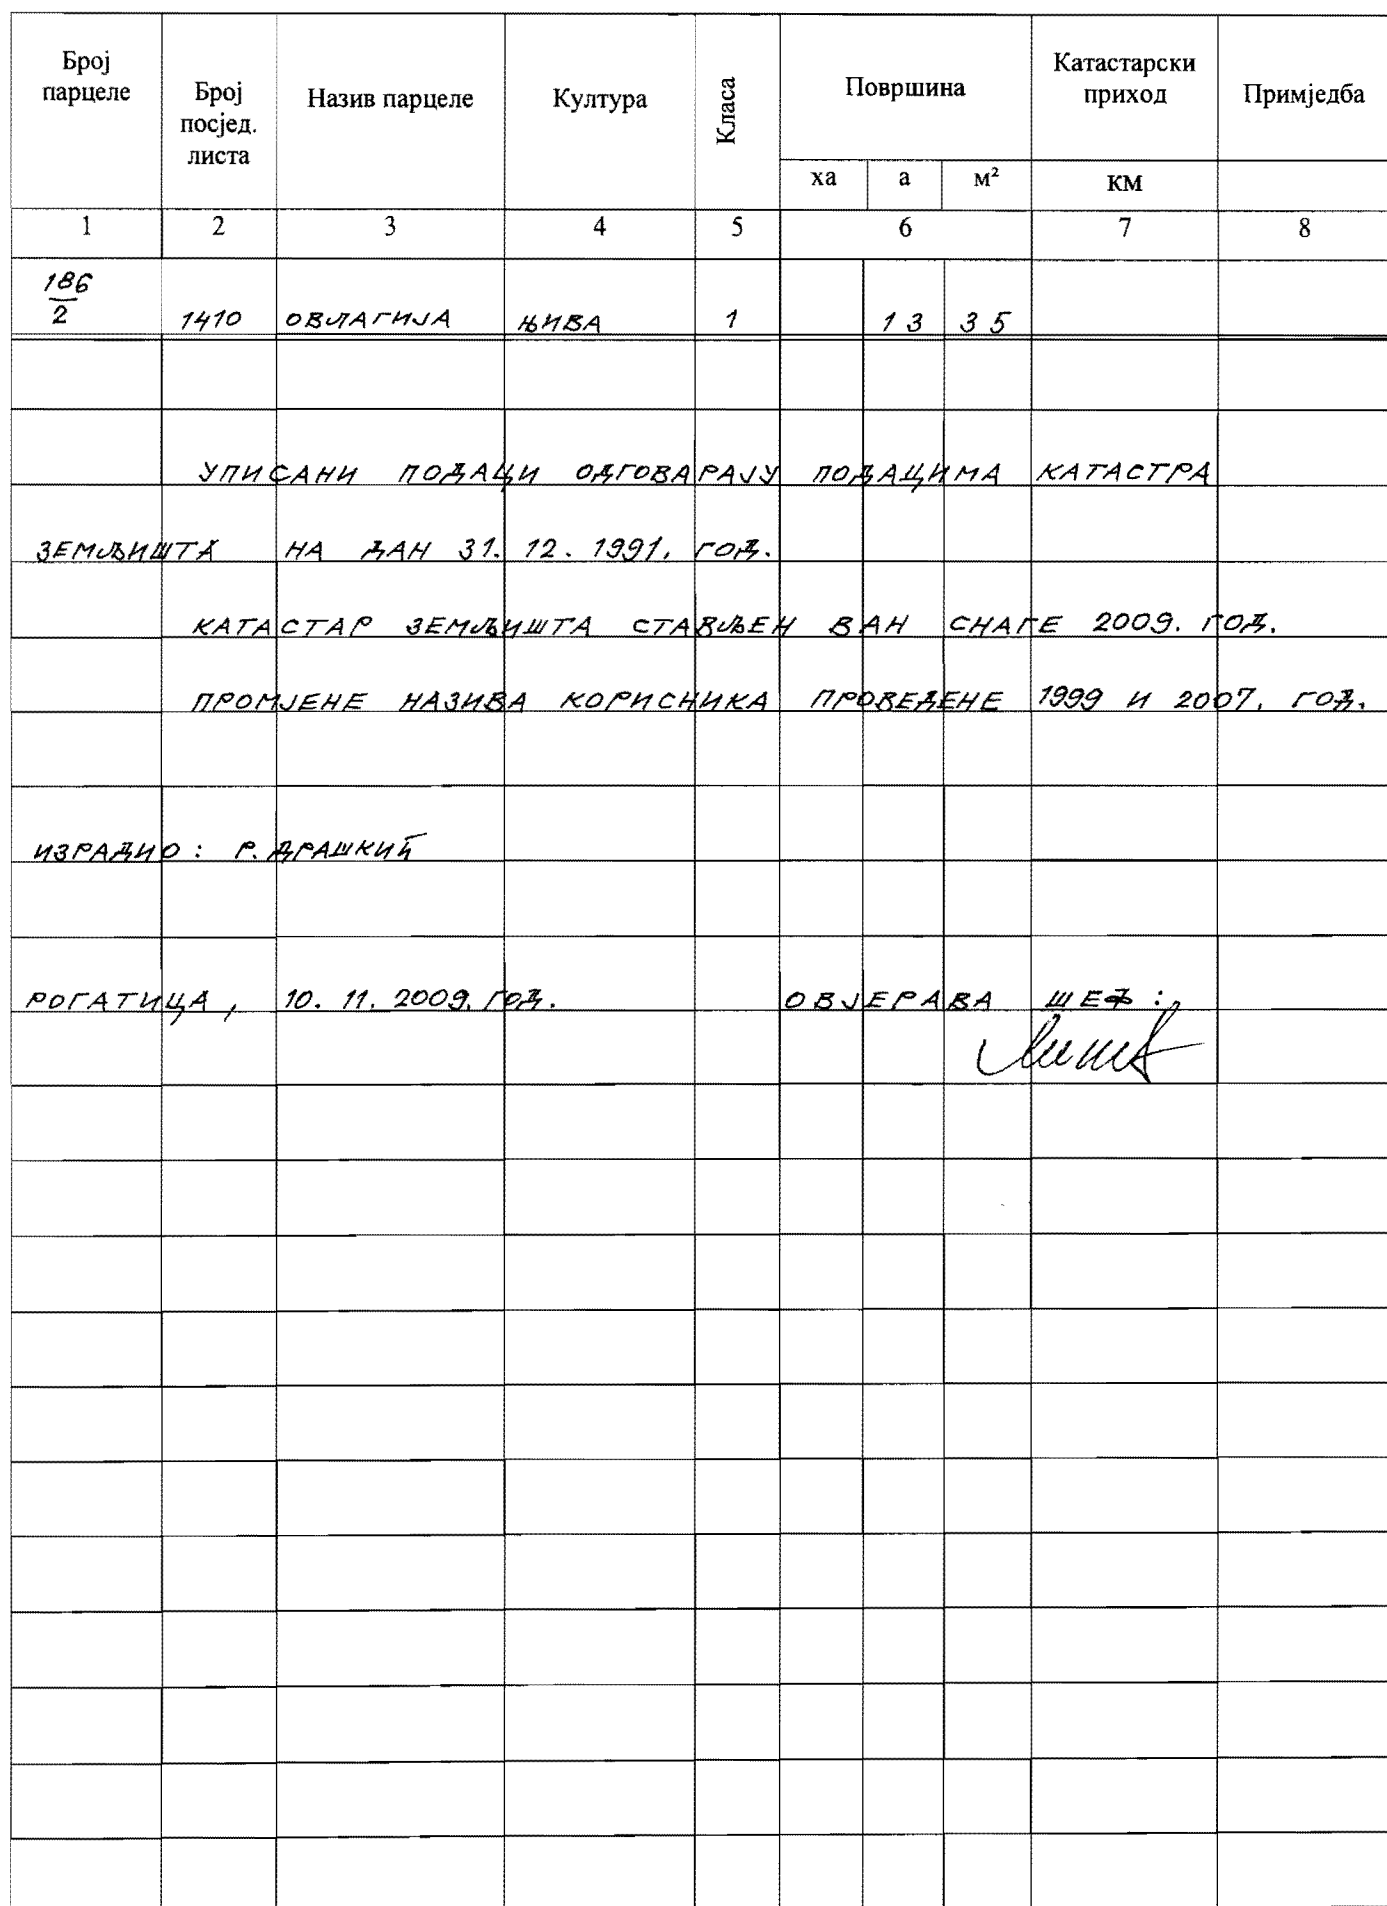 Број парцеле Број посјед. листа Назив парцеле Култура Класа Површина Катастарски приход Примједба
ха а м² КМ
1 2 3 4 5 6 7 8
186/2 1410 ОВЛАГИЈА ЊИВА 1 13 35
УПИСАНИ ПОДАЦИ ОДГОВАРАЈУ ПОДАЦИМА КАТАСТРА
ЗЕМЉИШТА НА ДАН 31. 12. 1991. ГОД.
КАТАСТАР ЗЕМЉИШТА СТАВЉЕН ВАН СНАГЕ 2009. ГОД.
ПРОМЈЕНЕ НАЗИВА КОРИСНИКА ПРОВЕДЕНЕ 1999 И 2007. ГОД.
ИЗРАДИО: Р. ДРАШКИЋ
РОГАТИЦА, 10. 11. 2009. ГОД. ОВЈЕРАВА ШЕФ: